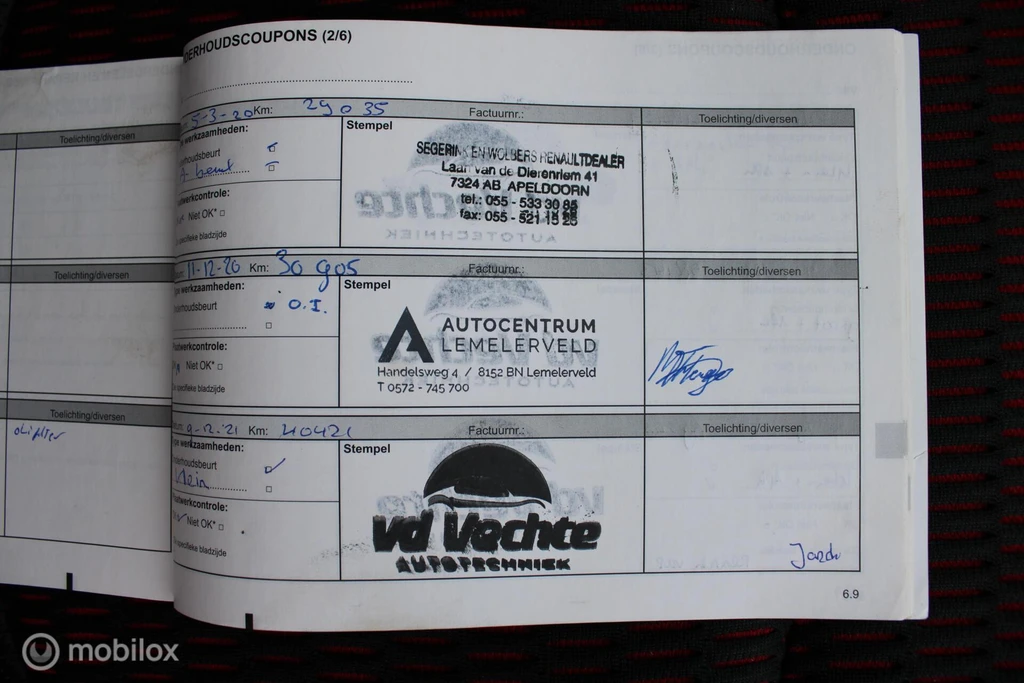 DERHOUDSCOUPONS (2/6)
Toelichting/diversen
Toelichting/diversen
Toelichting/diversen
5-3-20 Km: 29035 Factuurnr.: Toelichting/diversen
werkzaamheden:
Stempel
erhoudsbeurt
SEGERINK EN WOLBERS RENAULTDEALER
Laan van de Dierenriem 41
7324 AB APELDOORN
tel.: 055 - 533 30 88
fax: 055 - 521 15 25
twerkcontrole:
Niet OK*
specifieke bladzijde
11-12-20 Km: 30905 Factuurnr.: Toelichting/diversen
pe werkzaamheden:
Stempel
derhoudsbeurt O.I.
AUTOCENTRUM
LEMELERVELD
Handelsweg 4 / 8152 BN Lemelerveld
T 0572 - 745 700
aatwerkcontrole:
Niet OK*
specifieke bladzijde
9-12-21 Km: 40421 Factuurnr.: Toelichting/diversen
ype werkzaamheden:
Stempel
derhoudsbeurt
Klein
vd Vechte
AUTOTECHNIEK
aatwerkcontrole:
Niet OK*
specifieke bladzijde
6.9
mobilox